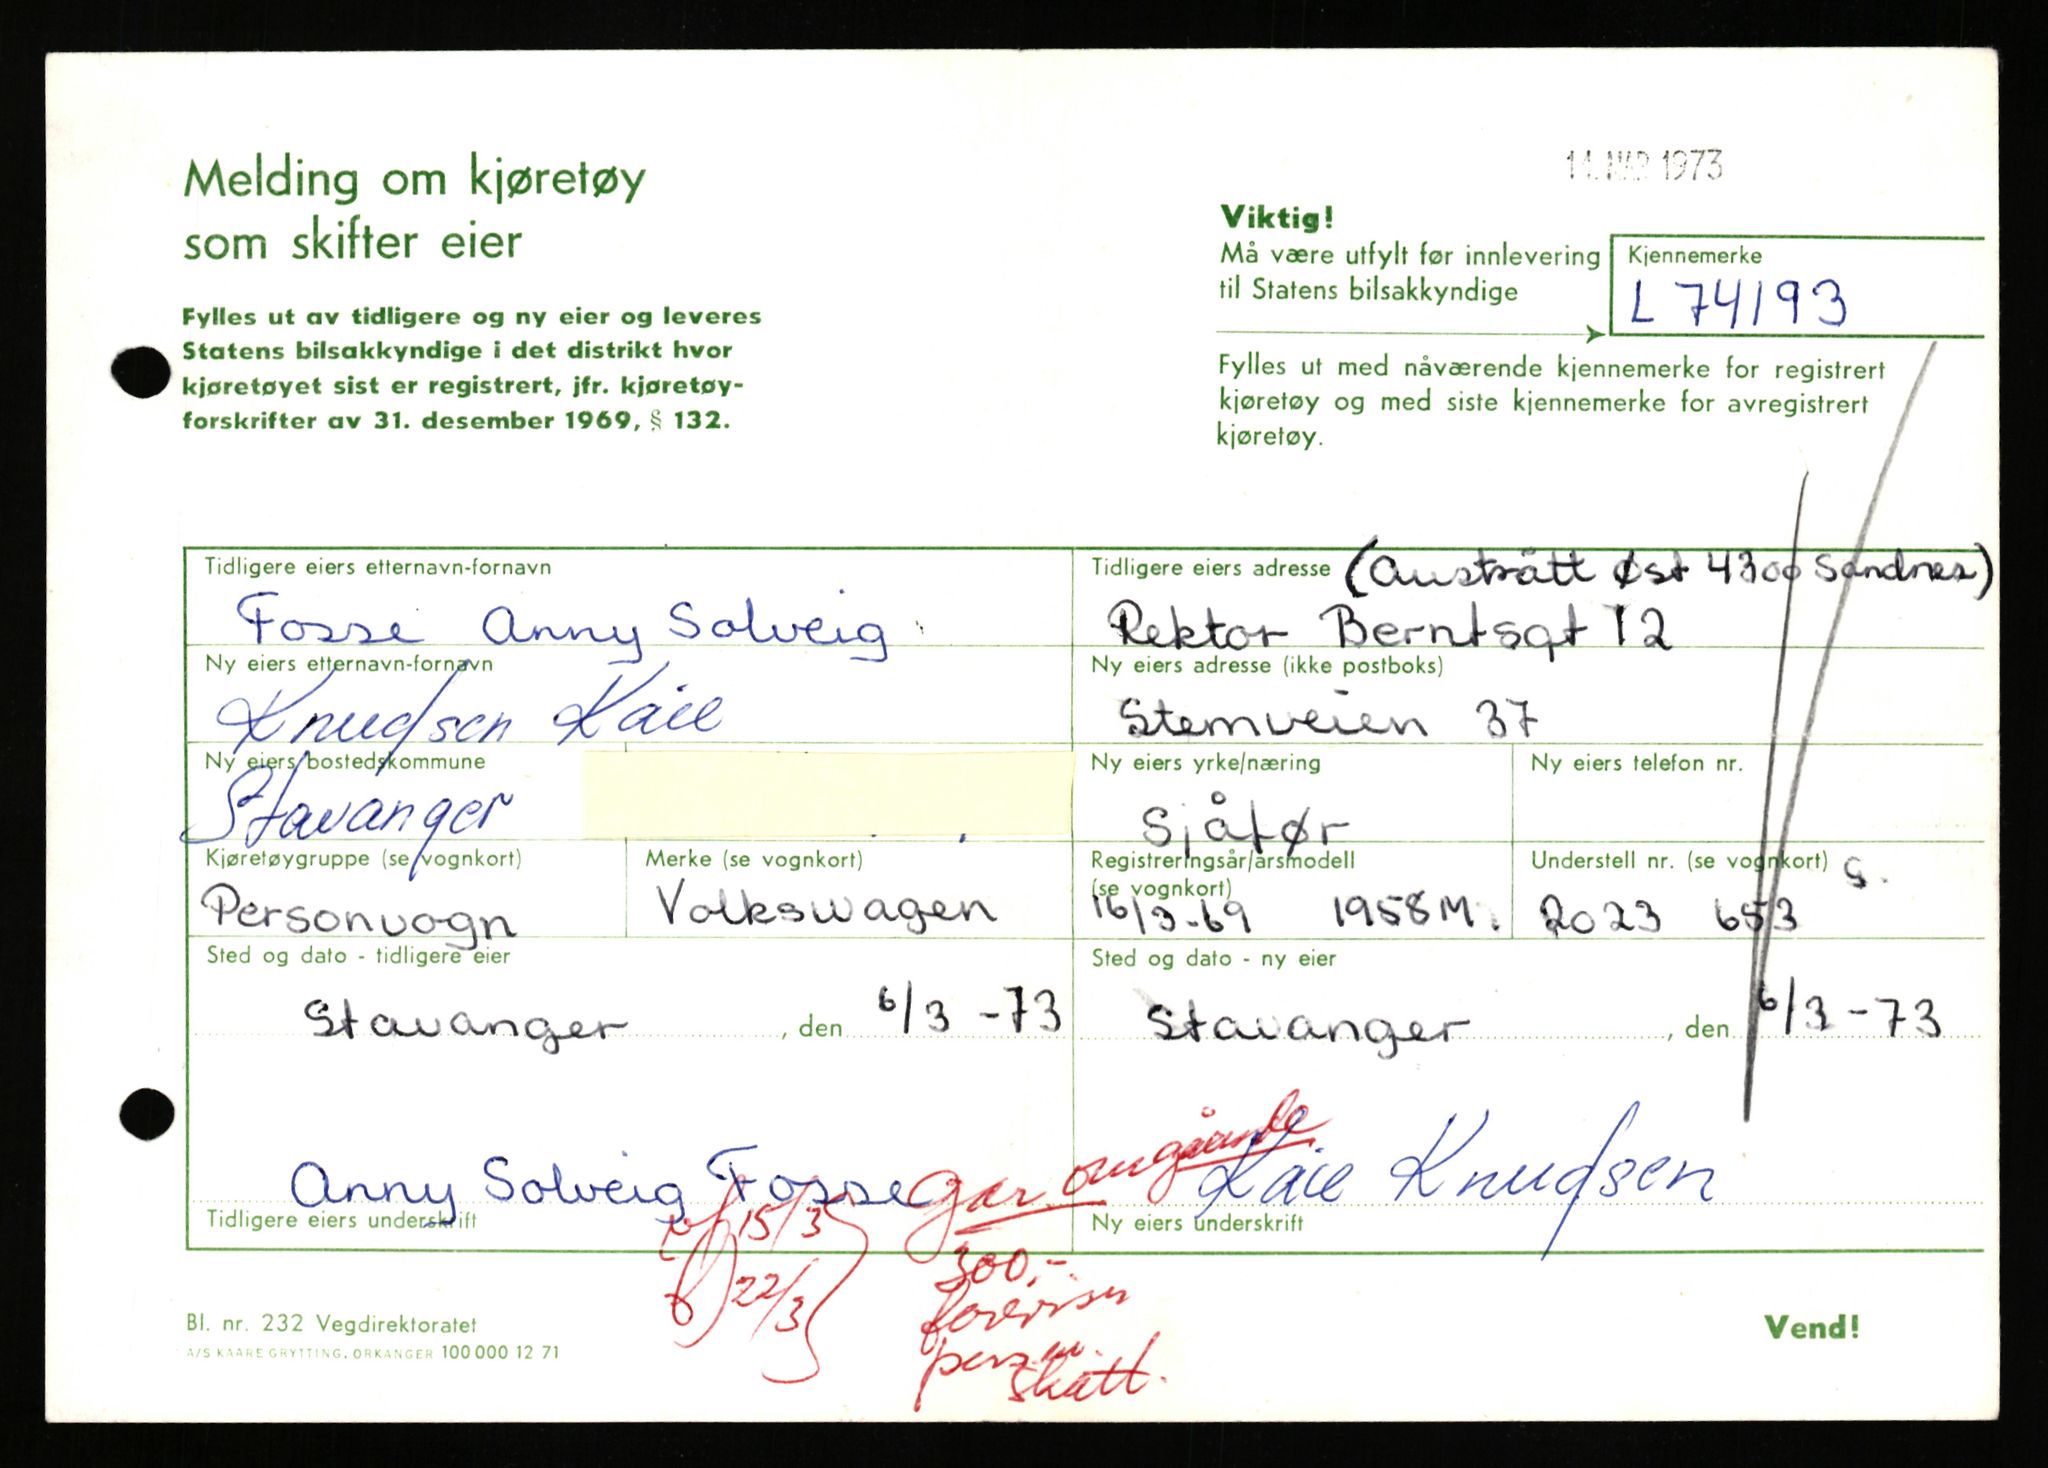 14. MAR 1973
Melding om kjøretøy
som skifter eier
Fylles ut av tidligere og ny eier og leveres
Statens bilsakkyndige i det distrikt hvor
kjøretøyet sist er registrert, jfr. kjøretøy-
forskrifter av 31. desember 1969, § 132.
Viktig!
Må være utfylt før innlevering
til Statens bilsakkyndige
Kjennemerke
L 74193
Fylles ut med nåværende kjennemerke for registrert
kjøretøy og med siste kjennemerke for avregistrert
kjøretøy.
Tidligere eiers etternavn-fornavn
Fosse Anny Solveig
Tidligere eiers adresse (Austrått Øst 4300 Sandnes)
Rektor Berntsgt 12
Ny eiers etternavn-fornavn
Knudsen Kåre
Ny eiers adresse (ikke postboks)
Stemveien 37
Ny eiers bostedskommune
Stavanger
Ny eiers yrke/næring
Sjåfør
Ny eiers telefon nr.
Kjøretøygruppe (se vognkort)
Personvogn
Merke (se vognkort)
Volkswagen
Registreringsår/årsmodell
(se vognkort)
16/3-69 1958 M.
Understell nr. (se vognkort) S.
2023 653
Sted og dato - tidligere eier
Stavanger, den 6/3-73
Sted og dato - ny eier
Stavanger, den 6/3-73
Anny Solveig Fosse
Tidligere eiers underskrift
Kåre Knudsen
Ny eiers underskrift
15/3
22/3
Gar. omgående
300,-
forevises
pers.
skatt.
Bl. nr. 232 Vegdirektoratet
A/S KAARE GRYTTING, ORKANGER 100 000 12 71
Vend!